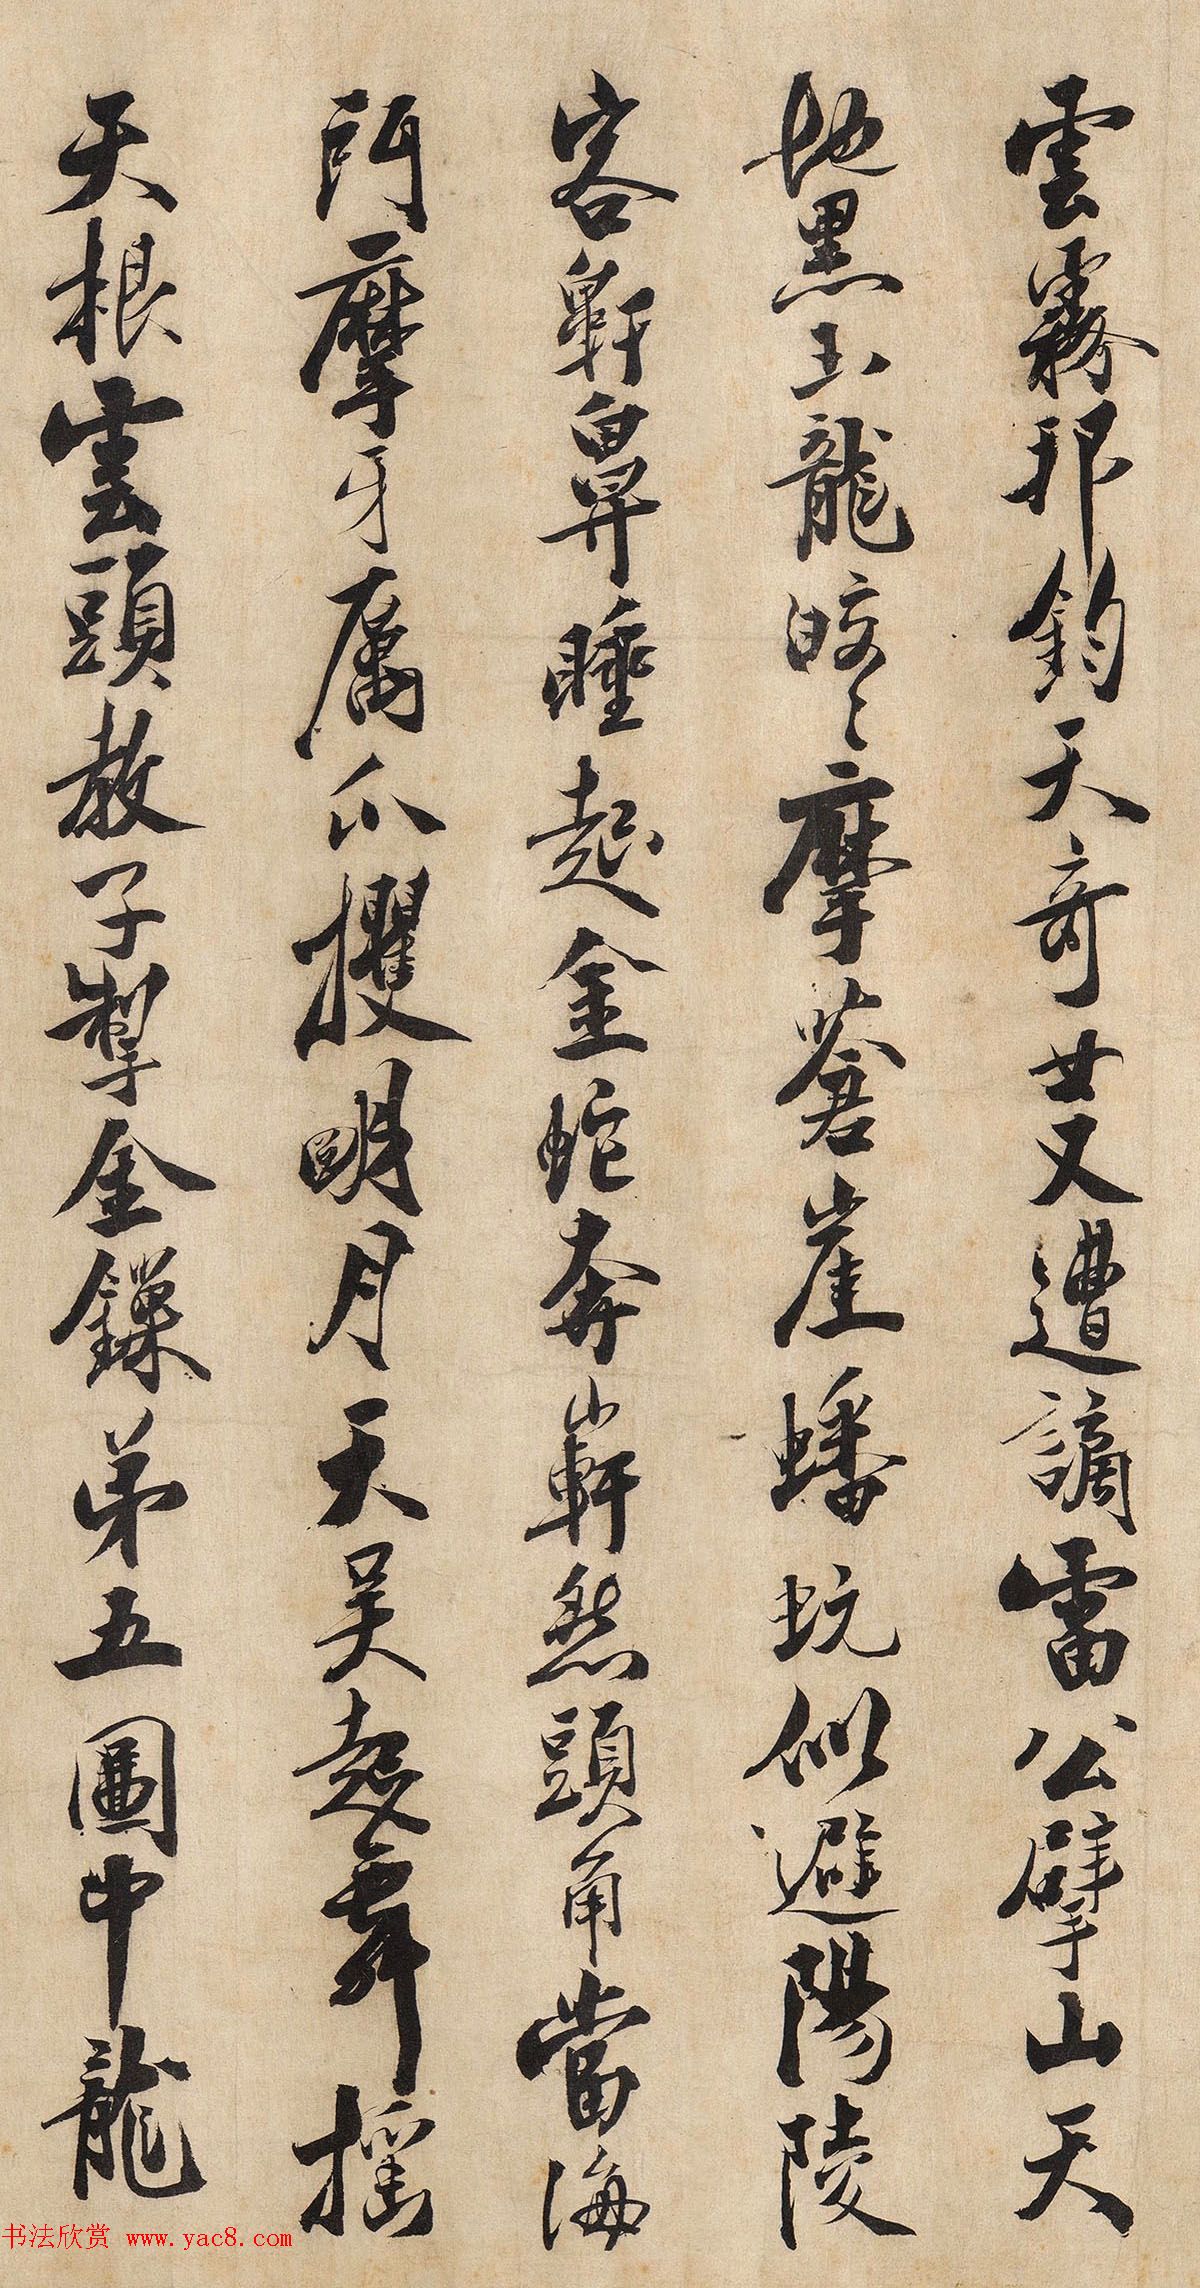 雲霧那鈞天奇女又遭謫雷公擘山天
地黑玉龍皎〻摩蒼崖蟠蚖似避陽陵
客鼾鼻睡起金蛇奔軒然頭角當海
門摩牙厲爪攫明月天吴起舞搖
天根雲頭教子掣金鏁弟五圖中龍
书法欣赏 www.yac8.com